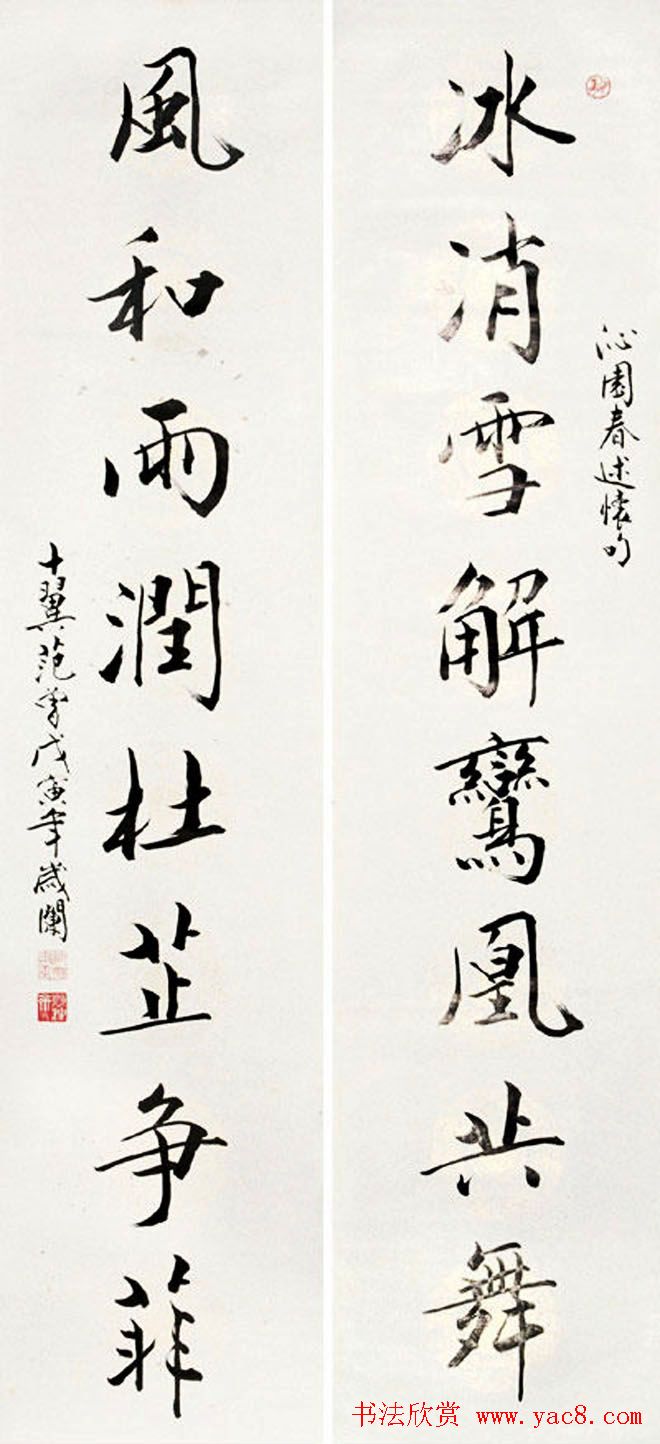 冰消雪解鸞凰共舞
沁園春述懷句
風和雨潤杜芷争菲
十翼范曾戊寅年歲闌
书法欣赏 www.yac8.com